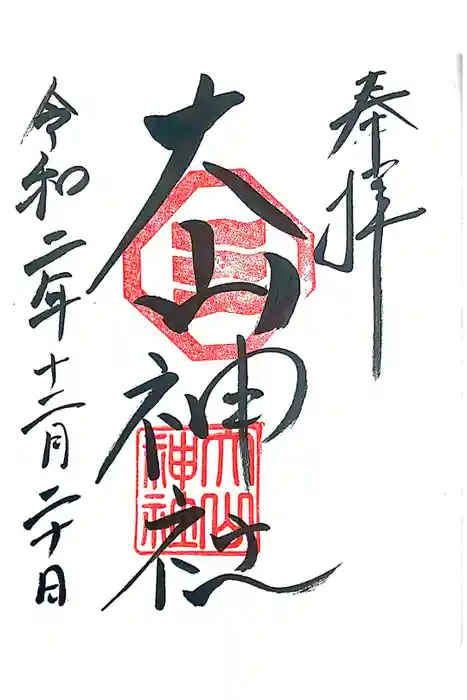 奉拝
大山神社
大山神社
令和二年十二月二十日